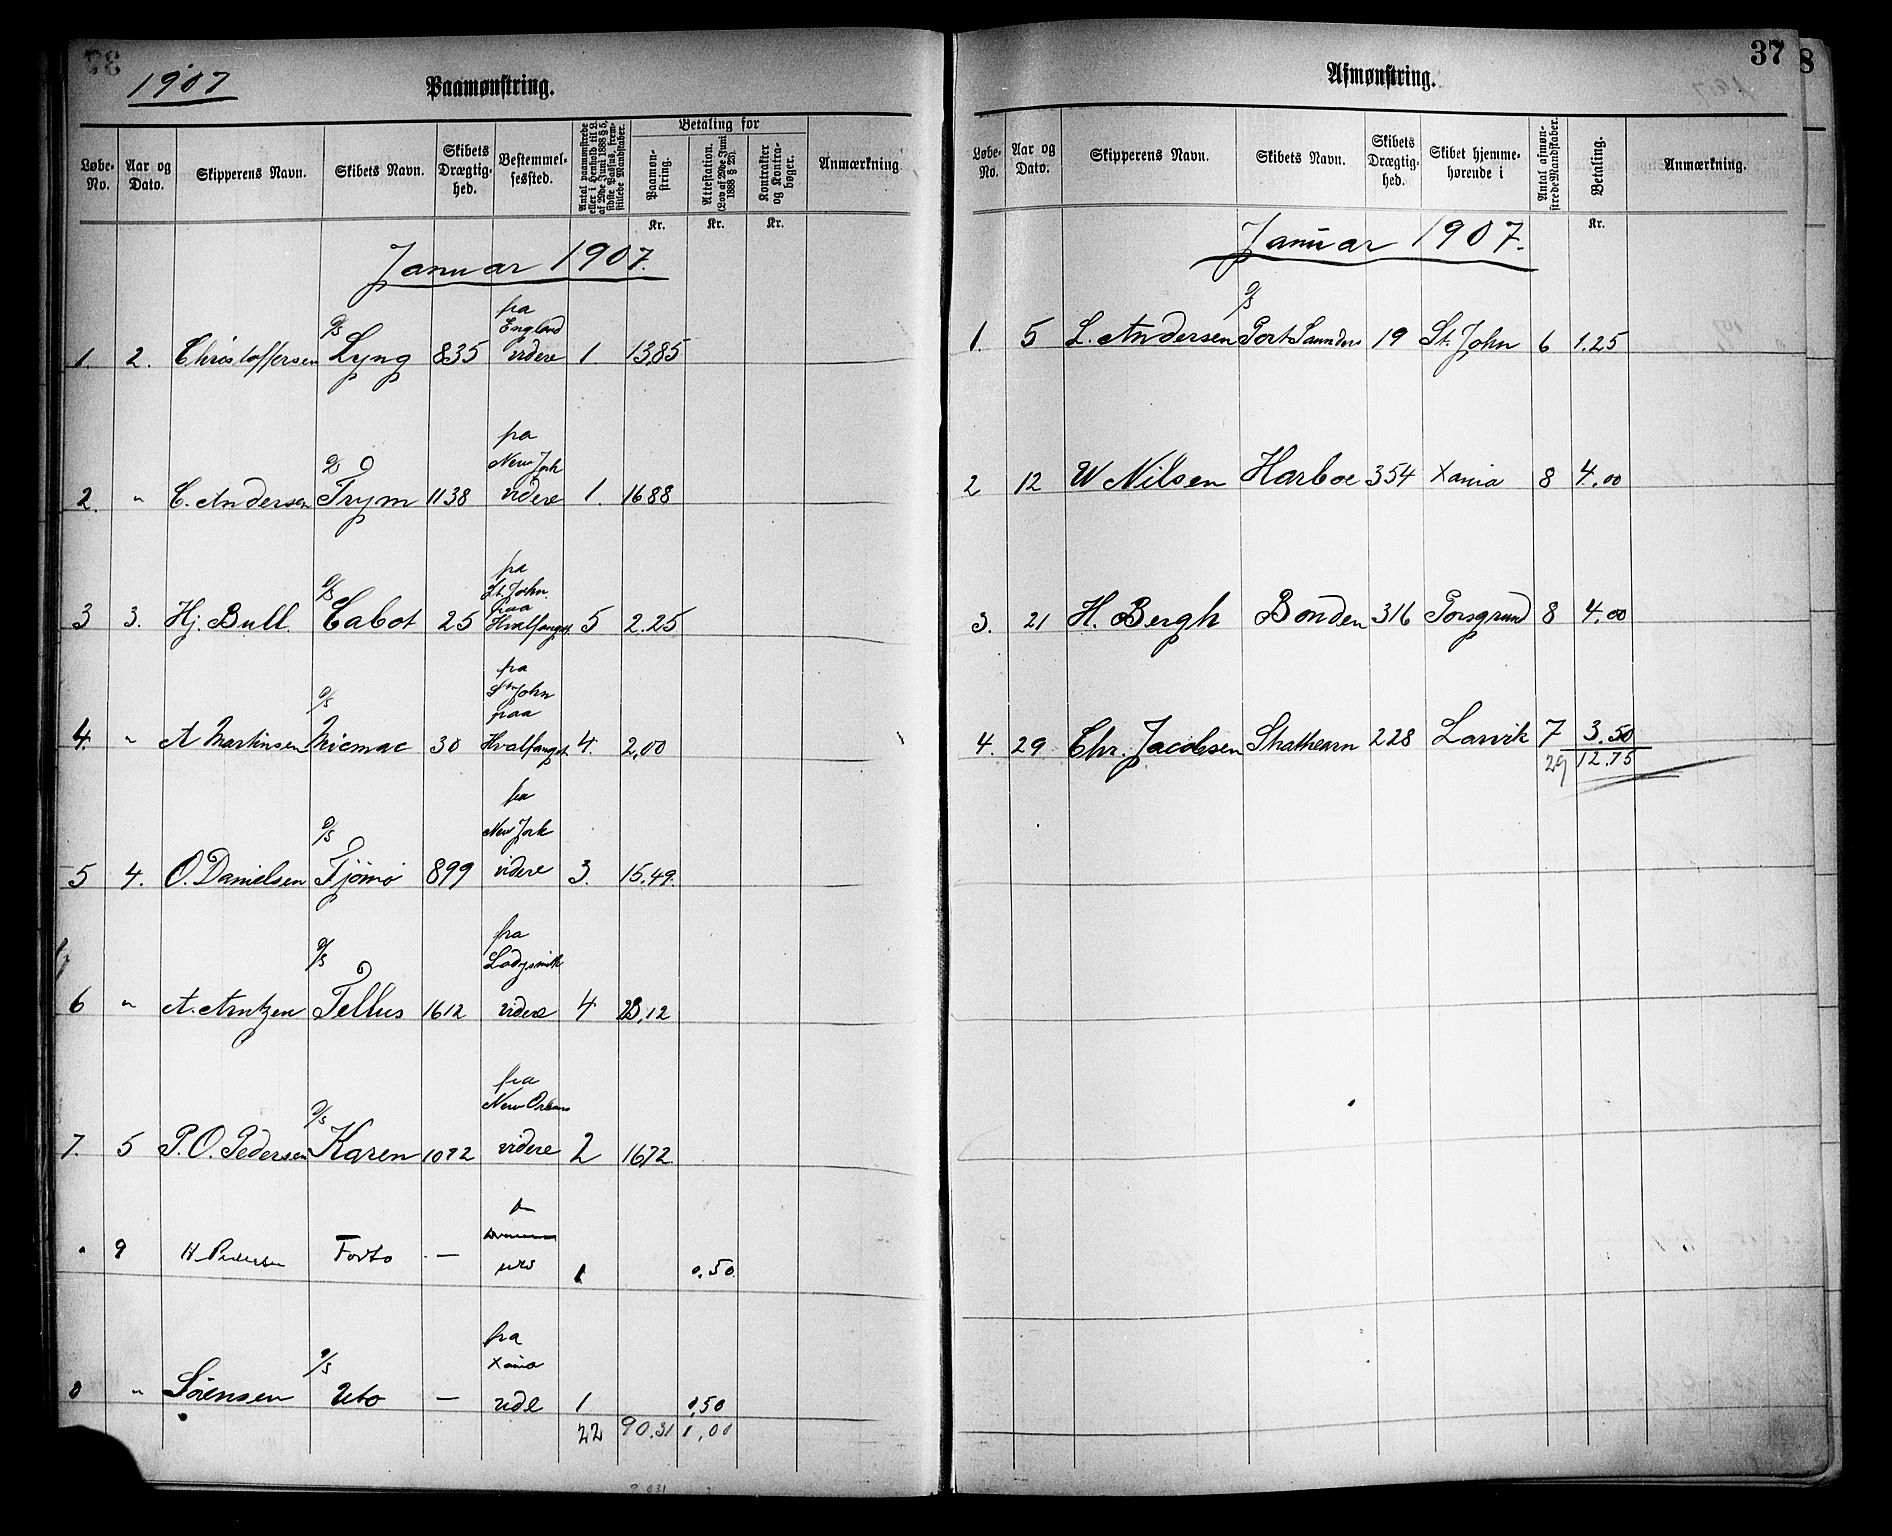 1907
Paamønstring.
Løbe-No.	Aar og Dato.	Skipperens Navn.	Skibets Navn.	Skibets Drægtig-hed.	Bestemmel-sessted.	Antal paamønstrede eller i Henhold til L. af 29de Juni 1888 § 5, sidste Passus, frem-stillede Mandskaber.	Betaling for	Paamøn-string.	Attestation. (Lov af 29de Juni 1888 § 23).	Kontrakter og Kontra-bøger.	Anmærkning
Kr.	Kr.	Kr.
Januar 1907.
fra
D/S	England
1.	2.	Christoffersen	Lyng	835	videre	1.	13,85
fra
D/S	New York
2.	"	C. Andersen	Trym	1138	videre	1.	16 88
fra
D/S	St. John
paa
3	3.	Hj. Bull.	Cabot	25	Hvalfangst	5	2.25
fra
D/S	St John
paa
4.	"	A Martinsen	Micmac	30	Hvalfangst	4.	2,00
fra
D/S	New York
5	4.	O. Danielsen	Tjømø	899	videre	3.	15.49.
fra
D/S	Ladysmith
6	"	A. Arntzen	Tellus	1612	videre	4	,12
fra
D/S	New Orleans
7.	5	P. O. Pedersen	Karen	1072	videre	2	1672
9	H Pedersen	—	1	0,50
fra
D/S	Xania
8	"	Sørensen	—	1	0,50
22	90.31	1,00
37
Afmønstring.
Løbe-No.	Aar og Dato.	Skipperens Navn.	Skibets Navn.	Skibets Drægtig-hed.	Skibet hjemme-hørende i	Antal afmøn-strede Mandskaber.	Betaling.	Anmærkning.
Kr.
Januar 1907.
D/S
1.	5	L. Andersen	Port Saunders	19	St. John	6	1.25
2	12	W Nilsen	Harboe	354	Xania	8	4,00
3.	21	H. Bergh	Bonden	316	Porsgrund	8	4,00
4.	29	Chr. Jacobsen	Strathearn	228	Larvik	7	3.50
29	12.75
8